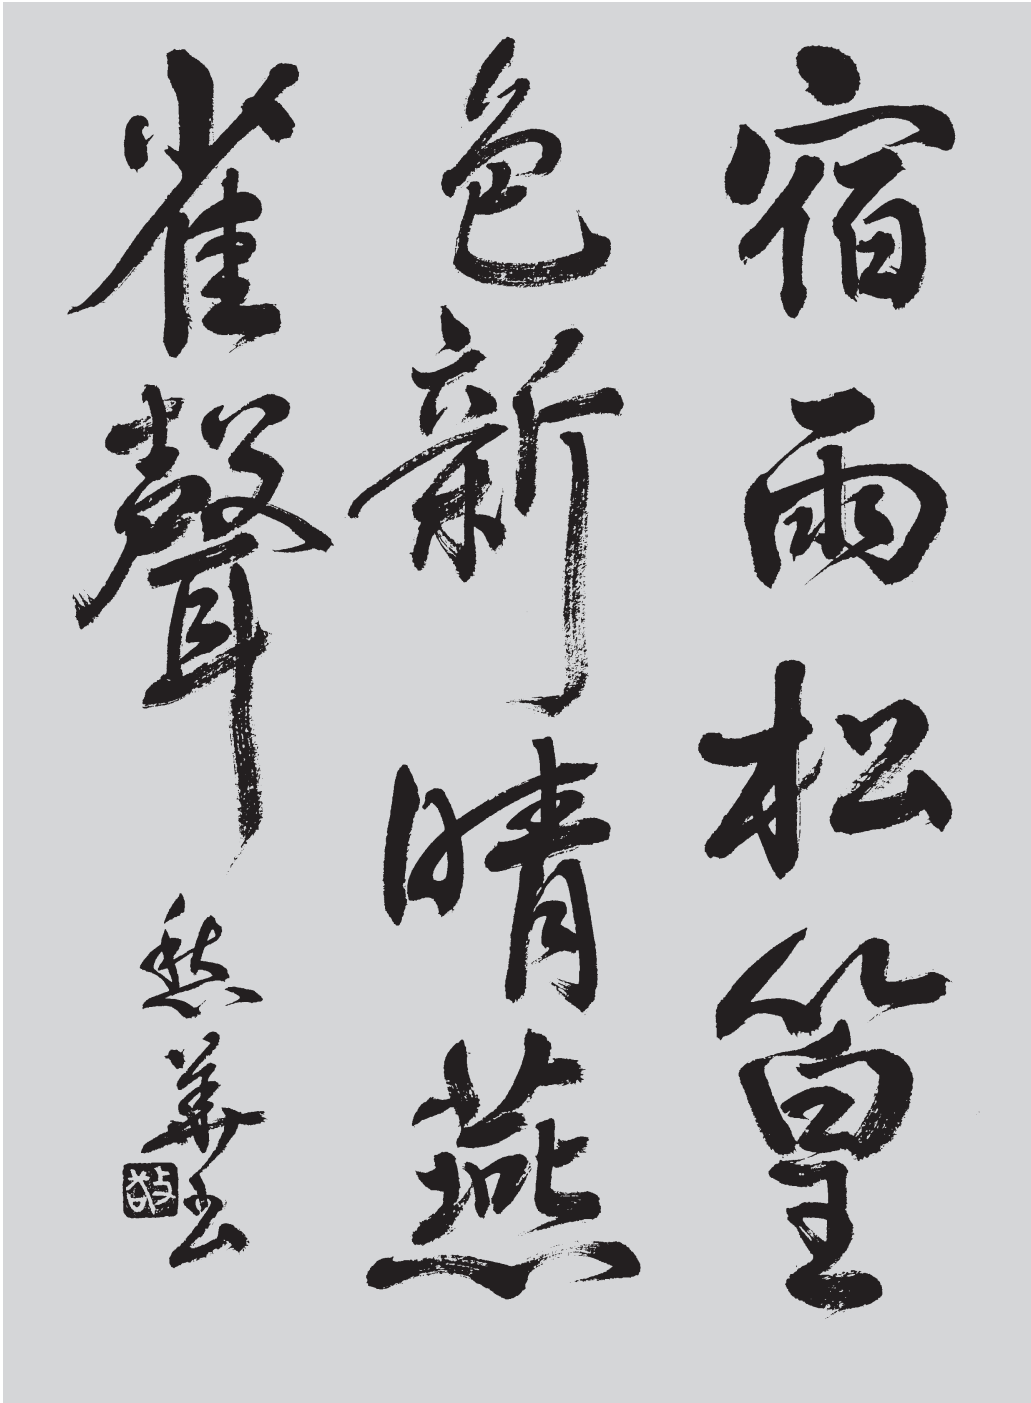 宿雨松篁
色新晴燕
雀聲
華